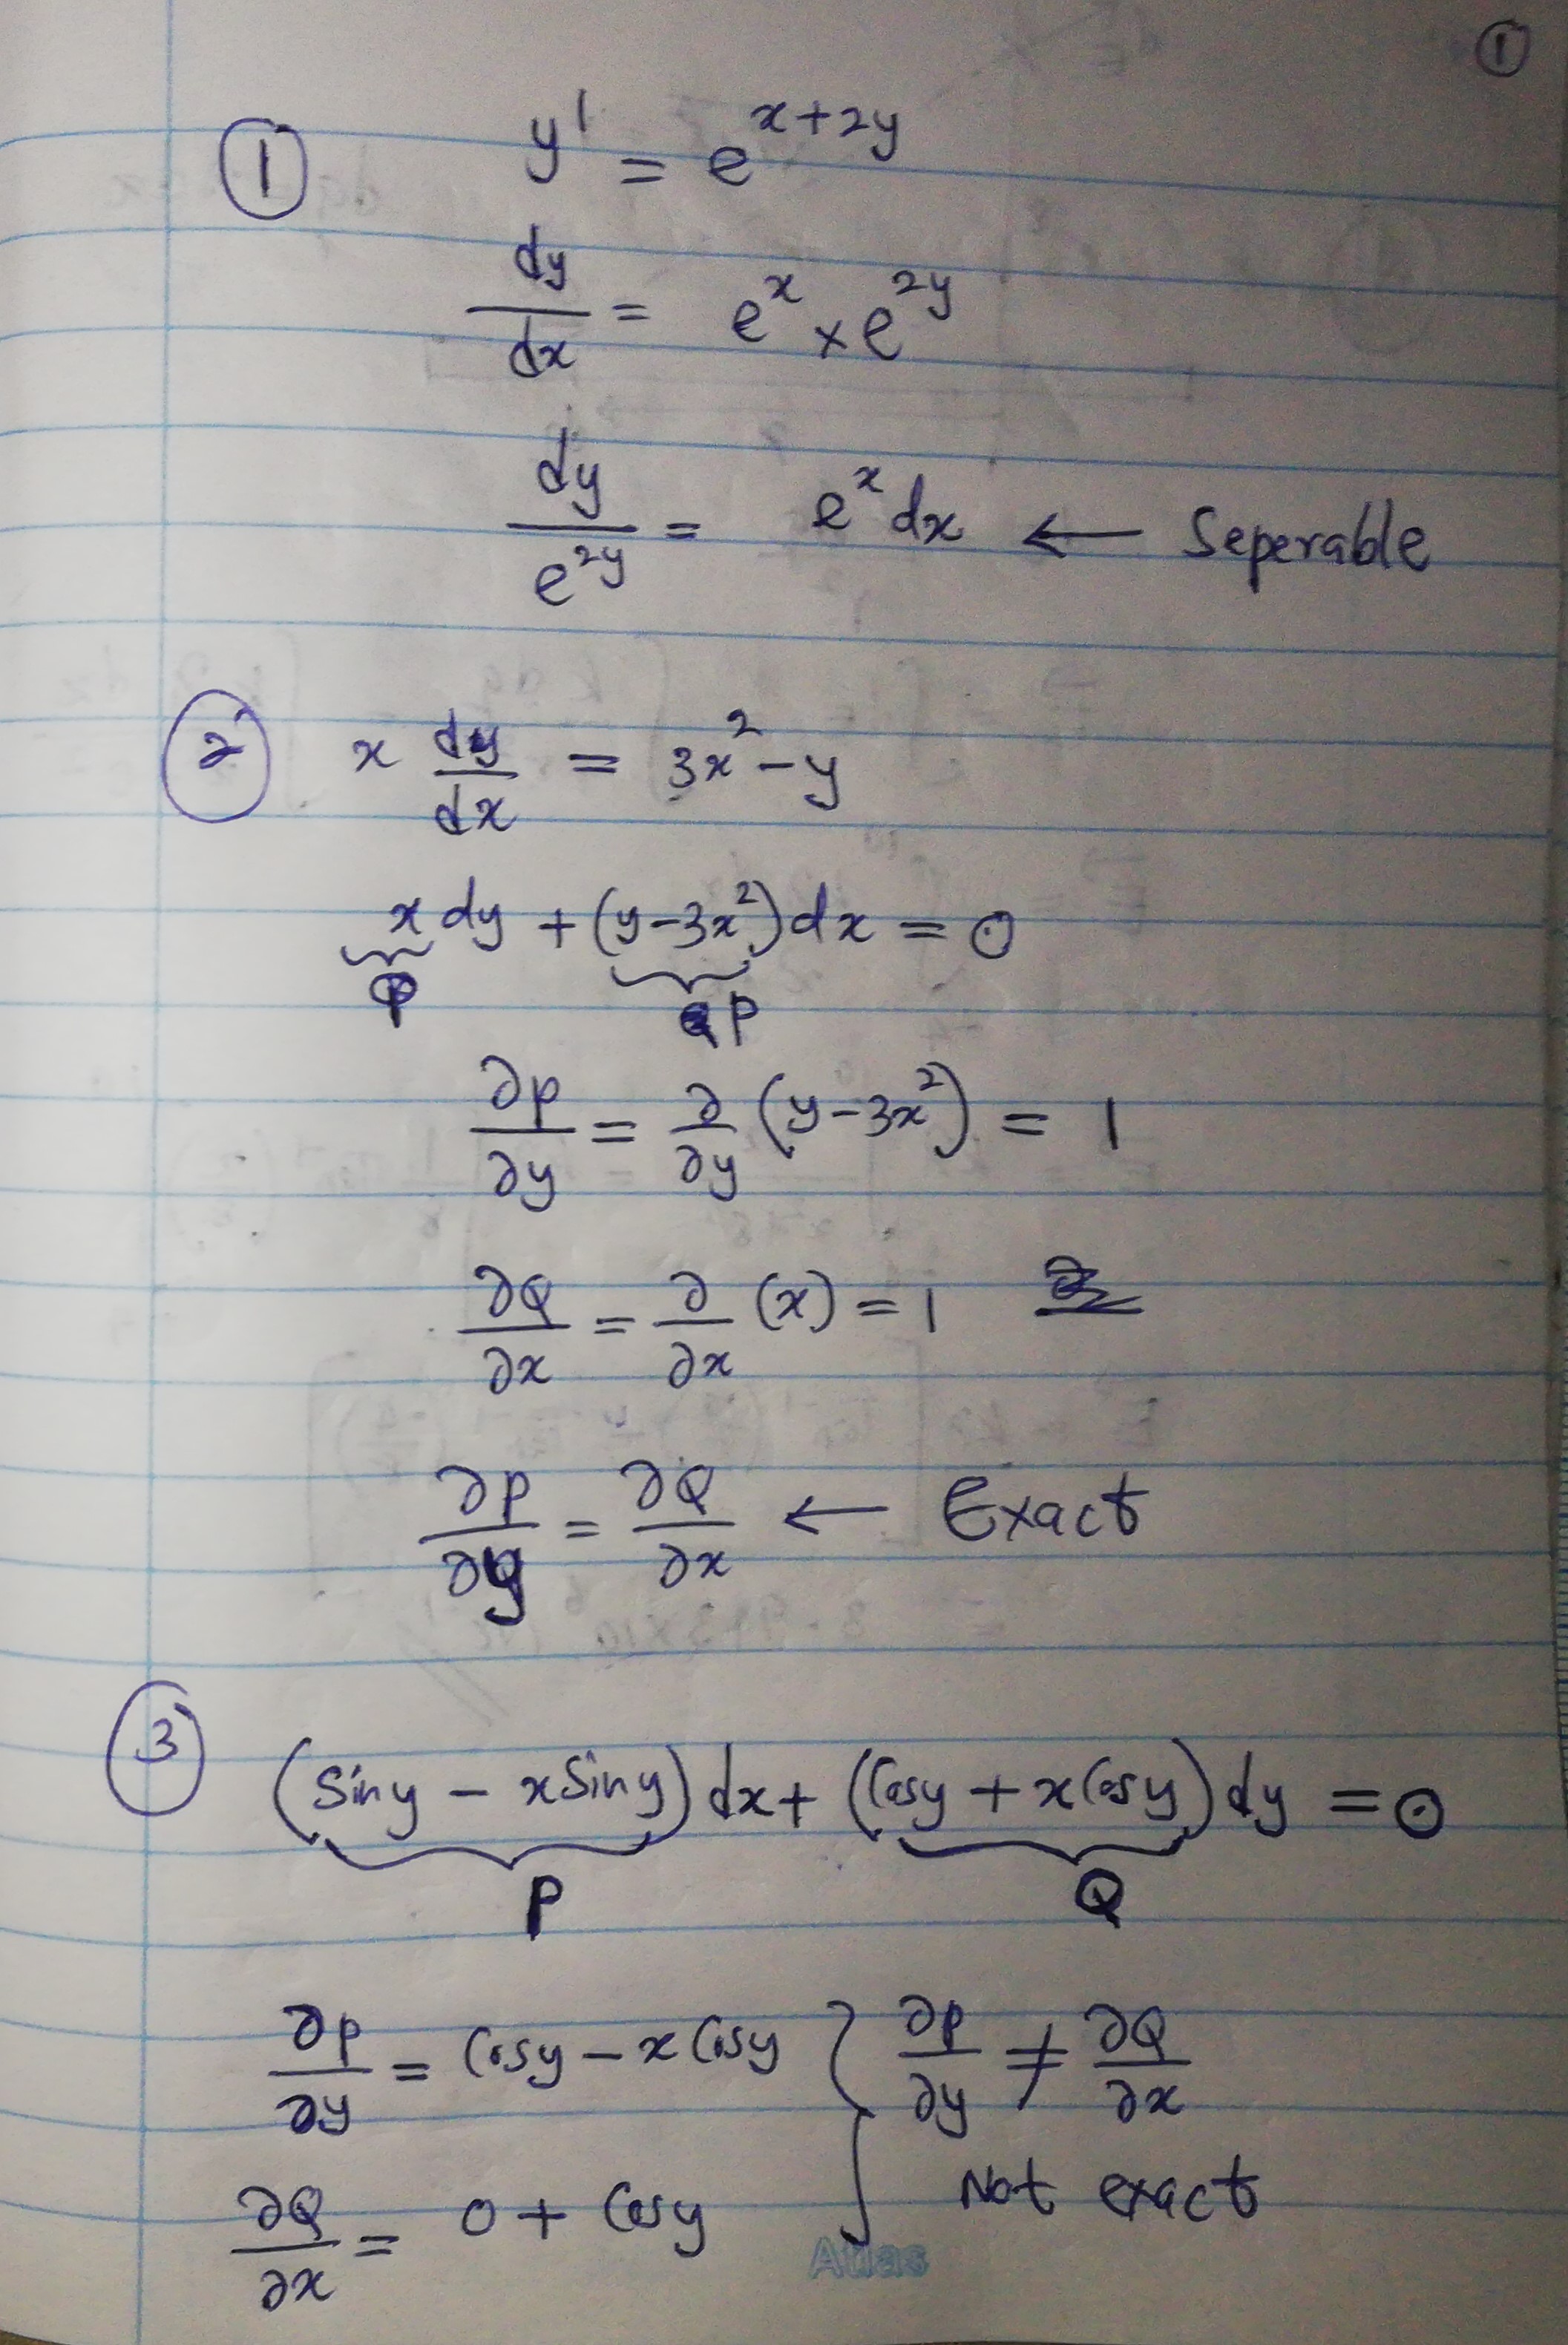 ①
① y' = e^{x+2y}
dy/dx = e^x × e^{2y}
dy/e^{2y} = e^x dx ← Seperable
② x dy/dx = 3x² - y
x dy + (y-3x²) dx = 0
Q P
∂P/∂y = ∂/∂y (y-3x²) = 1
∂Q/∂x = ∂/∂x (x) = 1
∂P/∂y = ∂Q/∂x ← Exact
③ (Siny - xSiny) dx + (Cosy + xCosy) dy = 0
P Q
∂P/∂y = Cosy - x Cosy } ∂P/∂y ≠ ∂Q/∂x
∂Q/∂x = 0 + Cosy Not exact
Atlas